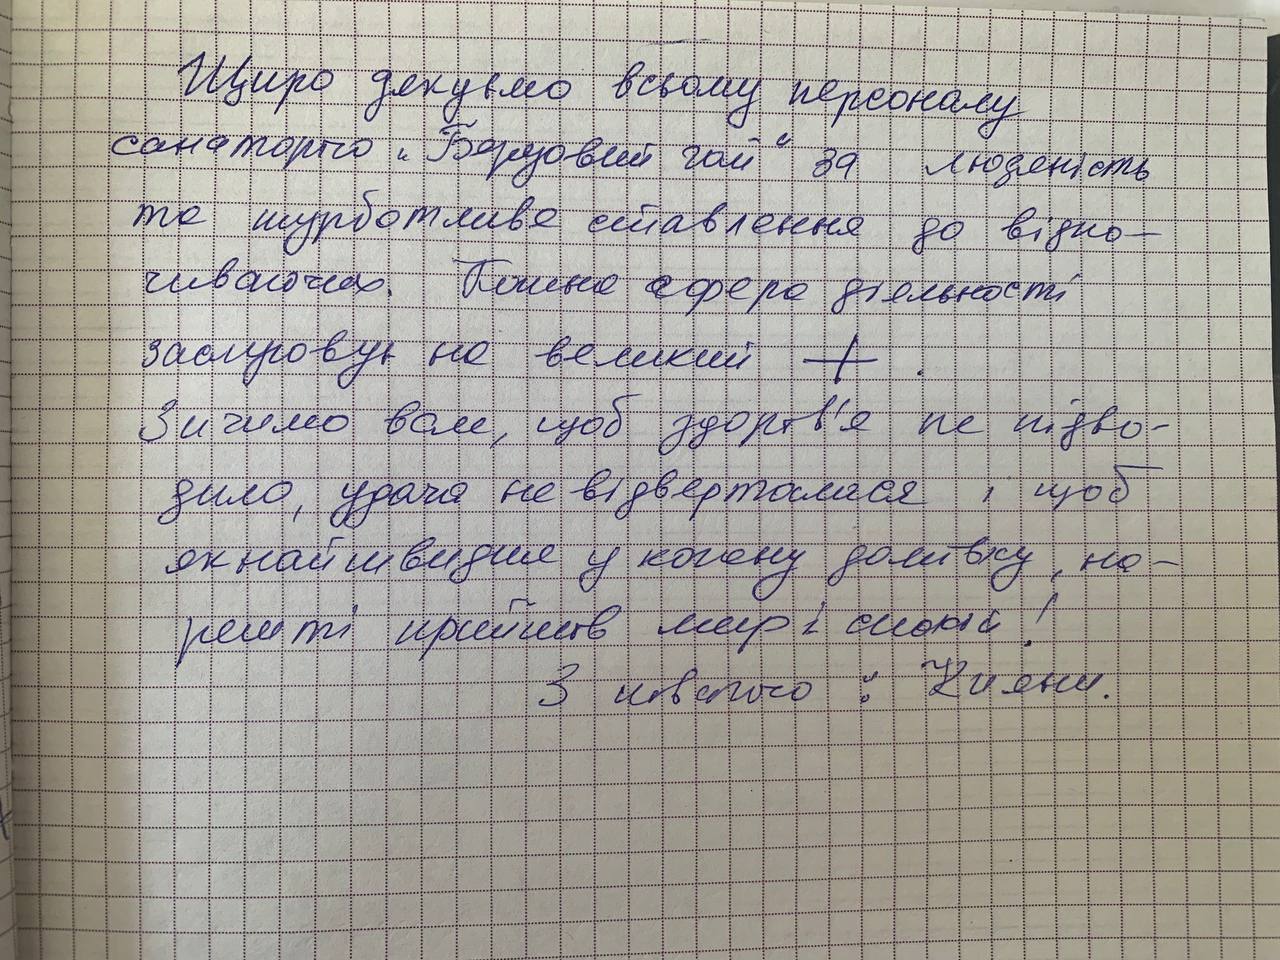 Щиро дякуємо всьому персоналу
санаторію „Березовий гай“ за людяність
та турботливе ставлення до відпо-
чиваючих. Кожна сфера діяльності
заслуговує на великий + .
Зичимо вам, щоб здоров'я не підво-
дило, удача не відверталася і щоб
якнайшвидше у кожну домівку, на-
решті прийшов мир і спокій!
З повагою : Кияни.